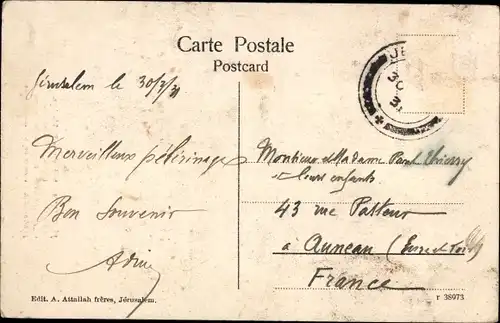 Carte Postale
Postcard
JE
30
Jérusalem le 30/7/31
Merveilleux pélérinage
Bon Souvenir
Monsieur et Madame Paul Thierry
et leurs enfants
43 rue Pasteur
à Auneau (Eure et Loir)
France
Edit. A. Attallah frères, Jérusalem.
r 38973